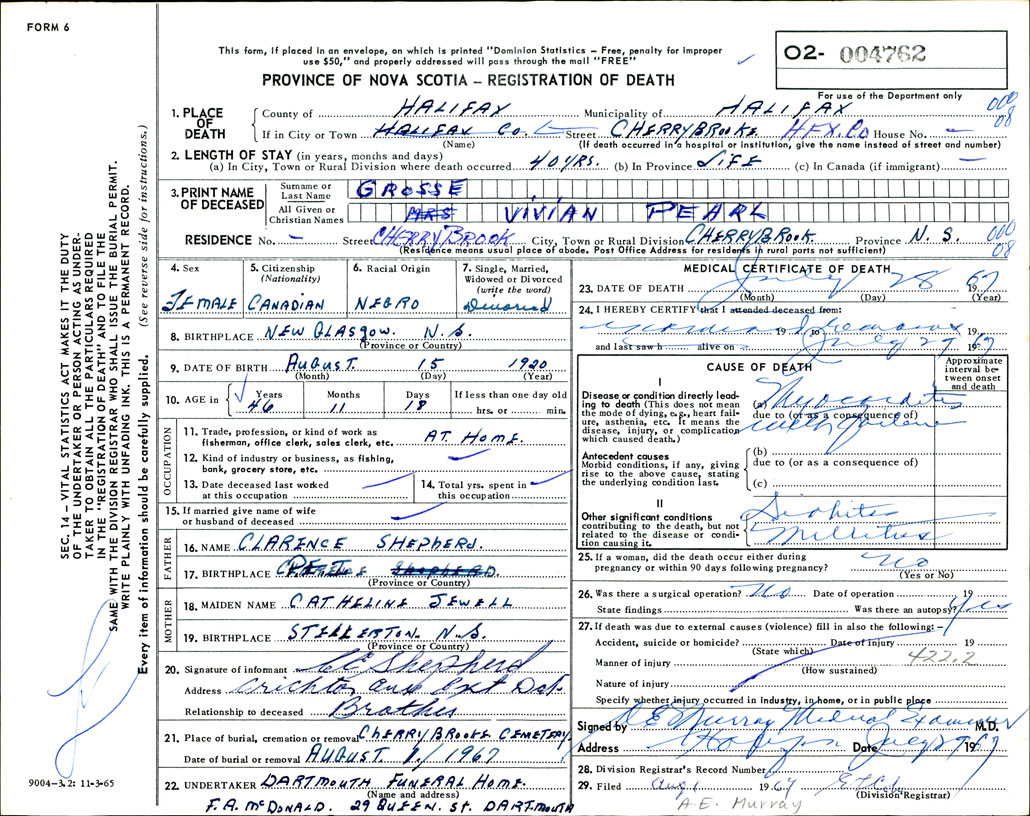 FORM 6
This form, if placed in an envelope, on which is printed "Dominion Statistics – Free, penalty for improper
use $50," and properly addressed will pass through the mail "FREE"
O2- 004762
PROVINCE OF NOVA SCOTIA – REGISTRATION OF DEATH
For use of the Department only
1. PLACE OF DEATH
County of HALIFAX Municipality of HALIFAX 000
If in City or Town HALIFAX Co. Street CHERRYBROOKE HFX. Co House No. – 08
(Name) (If death occurred in a hospital or institution, give the name instead of street and number)
2. LENGTH OF STAY (in years, months and days)
(a) In City, Town or Rural Division where death occurred 40 YRS. (b) In Province LIFE (c) In Canada (if immigrant) –
3. PRINT NAME OF DECEASED
Surname or Last Name GROSSE
All Given or Christian Names MRS VIVIAN PEARL
RESIDENCE No. – Street CHERRYBROOK City, Town or Rural Division CHERRYBROOK Province N. S. 000
(Residence means usual place of abode. Post Office Address for residents in rural parts not sufficient) 08
4. Sex
FEMALE
5. Citizenship
(Nationality)
CANADIAN
6. Racial Origin
NEGRO
7. Single, Married,
Widowed or Divorced
(write the word)
Divorced
8. BIRTHPLACE NEW GLASGOW. N.S.
(Province or Country)
9. DATE OF BIRTH AUGUST. 15 1920
(Month) (Day) (Year)
10. AGE in Years Months Days If less than one day old
46 11 18 hrs. or min.
OCCUPATION
11. Trade, profession, or kind of work as
fisherman, office clerk, sales clerk, etc. AT HOME.
12. Kind of industry or business, as fishing,
bank, grocery store, etc.
13. Date deceased last worked
at this occupation
14. Total yrs. spent in
this occupation
15. If married give name of wife
or husband of deceased
FATHER
16. NAME CLARENCE SHEPHERD.
17. BIRTHPLACE
(Province or Country)
MOTHER
18. MAIDEN NAME CATHELINE JEWELL
19. BIRTHPLACE STELLERTON. N.S.
(Province or Country)
20. Signature of informant Shepherd
Address Crichton Ave Ext Dart
Relationship to deceased Brother
21. Place of burial, cremation or removal CHERRY BROOKE CEMETERY
Date of burial or removal AUGUST. 1, 1967
22. UNDERTAKER DARTMOUTH FUNERAL HOME.
(Name and address)
F.A. McDONALD. 29 QUEEN. St. DARTMOUTH
MEDICAL CERTIFICATE OF DEATH
23. DATE OF DEATH July 28 1967
(Month) (Day) (Year)
24. I HEREBY CERTIFY that I attended deceased from:
19 to 19
and last saw h alive on July 29 1967
CAUSE OF DEATH
Approximate
interval between onset
and death
I
Disease or condition directly leading to death (This does not mean
the mode of dying, e.g., heart failure, asthenia, etc. It means the
disease, injury, or complication
which caused death.)
(a) Myocarditis
due to (or as a consequence of)
with failure
Antecedent causes
Morbid conditions, if any, giving
rise to the above cause, stating
the underlying condition last.
(b)
due to (or as a consequence of)
(c)
II
Other significant conditions
contributing to the death, but not
related to the disease or condition causing it.
Diabites
Millitus
25. If a woman, did the death occur either during
pregnancy or within 90 days following pregnancy? No
(Yes or No)
26. Was there a surgical operation? No Date of operation 19
State findings Was there an autopsy? Yes
27. If death was due to external causes (violence) fill in also the following: –
Accident, suicide or homicide? Date of injury 19
(State which)
Manner of injury 422.2
(How sustained)
Nature of injury
Specify whether injury occurred in industry, in home, or in public place
Signed by A E Murray Medical Examiner M.D.
Address Halifax Date July 29 1967
28. Division Registrar's Record Number
29. Filed Aug 1 1967
(Division Registrar)
A.E. Murray
SEC. 14 – VITAL STATISTICS ACT MAKES IT THE DUTY
OF THE UNDERTAKER OR PERSON ACTING AS UNDERTAKER TO OBTAIN ALL THE PARTICULARS REQUIRED
IN THE "REGISTRATION OF DEATH" AND TO FILE THE
SAME WITH THE DIVISION REGISTRAR WHO SHALL ISSUE THE BURIAL PERMIT.
WRITE PLAINLY WITH UNFADING INK. THIS IS A PERMANENT RECORD.
Every item of information should be carefully supplied. (See reverse side for instructions.)
9004-3.2: 11-3-65